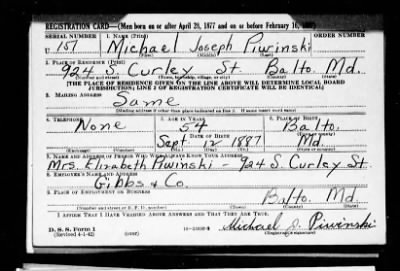 REGISTRATION CARD—(Men born on or after April 28, 1877 and on or before February 16, 1897)
SERIAL NUMBER 1. NAME (Print) ORDER NUMBER
U 157 Michael Joseph Piwinski
(First) (Middle) (Last)
2. PLACE OF RESIDENCE (Print)
924 S. Curley St. Balto. Md.
(Number and street) (Town, township, village, or city) (County) (State)
[THE PLACE OF RESIDENCE GIVEN ON THE LINE ABOVE WILL DETERMINE LOCAL BOARD
JURISDICTION; LINE 2 OF REGISTRATION CERTIFICATE WILL BE IDENTICAL]
3. MAILING ADDRESS
Same
[Mailing address if other than place indicated on line 2. If same insert word same]
4. TELEPHONE 5. AGE IN YEARS 6. PLACE OF BIRTH
None 54 Balto.
DATE OF BIRTH
Sept. 12 1887 Md.
(Exchange) (Number) (Mo.) (Day) (Yr.) (State or country)
7. NAME AND ADDRESS OF PERSON WHO WILL ALWAYS KNOW YOUR ADDRESS
Mrs. Elizabeth Piwinski - 924 S. Curley St.
8. EMPLOYER'S NAME AND ADDRESS
Gibbs & Co.
9. PLACE OF EMPLOYMENT OR BUSINESS
Balto. Md.
(Number and street or R. F. D. number) (Town) (County) (State)
I AFFIRM THAT I HAVE VERIFIED ABOVE ANSWERS AND THAT THEY ARE TRUE.
D. S. S. Form 1
(Revised 4-1-42) (over) Michael J. Piwinski
(Registrant's signature)